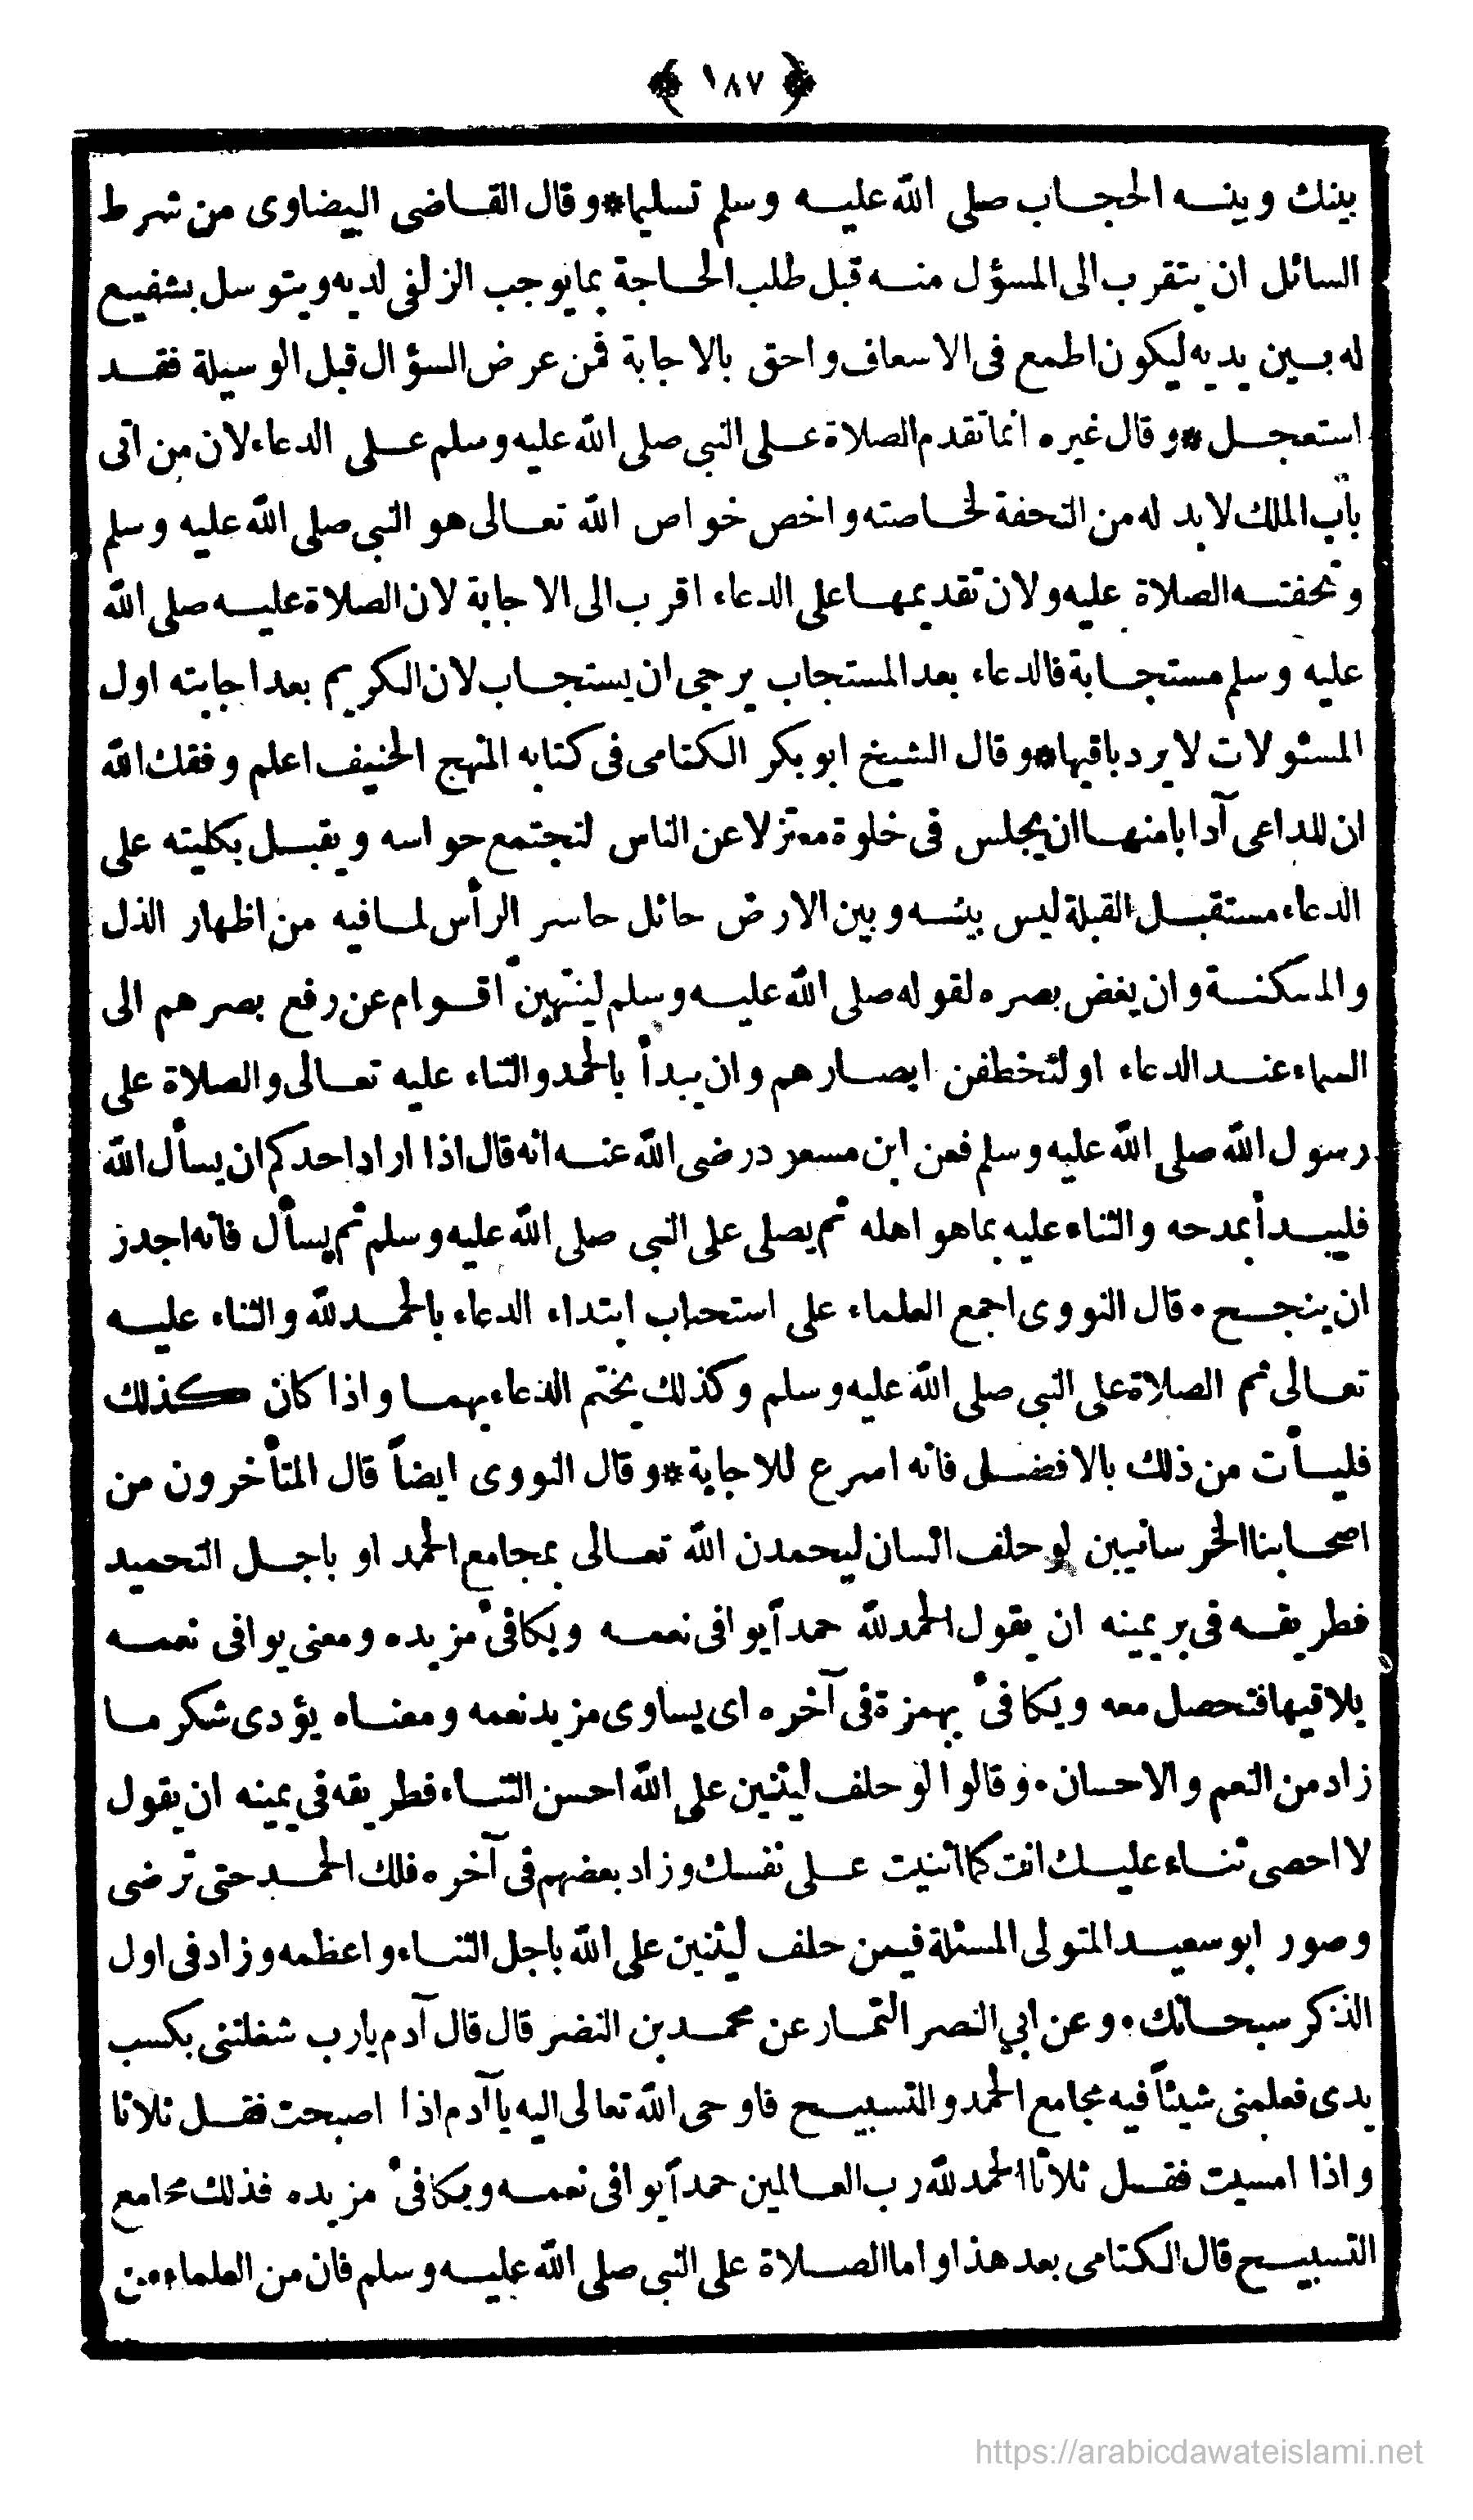 ﴿ ١٨٧ ﴾
بينك وبينه الحجاب صلى الله عليه وسلم تسليما * وقال القاضى البيضاوى من شرط
السائل ان يتقرب الى المسؤل منه قبل طلب الحاجة بما يوجب الزلفى لديه ويتوسل بشفيع
له بين يديه ليكون اطمع فى الاسعاف واحق بالاجابة فمن عرض السؤال قبل الوسيلة فقد
استعجل * وقال غيره انما تقدم الصلاة على النبى صلى الله عليه وسلم على الدعاء لان من اتى
باب الملك لا بد له من التحفة لخاصته واخص خواص الله تعالى هو النبى صلى الله عليه وسلم
وتحفته الصلاة عليه ولان تقديمها على الدعاء اقرب الى الاجابة لان الصلاة عليه صلى الله
عليه وسلم مستجابة فالدعاء بعد المستجاب يرجى ان يستجاب لان الكريم بعد اجابته اول
المسئولات لا يرد باقيها * وقال الشيخ ابو بكر الكتامى فى كتابه المنهج الحنيف اعلم وفقك الله
ان للداعى آدابا منها ان يجلس فى خلوة معتزلا عن الناس لتجتمع حواسه ويقبل بكليته على
الدعاء مستقبل القبلة ليس بينه وبين الارض حائل حاسر الرأس لما فيه من اظهار الذل
والمسكنة وان يغض بصره لقوله صلى الله عليه وسلم لينتهين اقوام عن رفع بصرهم الى
السماء عند الدعاء او لتخطفن ابصارهم وان يبدأ بالحمد والثناء عليه تعالى والصلاة على
رسول الله صلى الله عليه وسلم فعن ابن مسعود رضى الله عنه انه قال اذا اراد احدكم ان يسأل الله
فليبدأ بمدحه والثناء عليه بما هو اهله ثم يصلى على النبى صلى الله عليه وسلم ثم يسأل فانه اجدر
ان ينجح • قال النووى اجمع العلماء على استحباب ابتداء الدعاء بالحمد لله والثناء عليه
تعالى ثم الصلاة على النبى صلى الله عليه وسلم وكذلك يختم الدعاء بهما واذا كان كذلك
فليأت من ذلك بالافضل فانه اسرع للاجابة * وقال النووى ايضاً قال المتأخرون من
اصحابنا الخرسانيين لو حلف انسان ليحمدن الله تعالى بمجامع الحمد او باجل التحميد
فطريقه فى بر يمينه ان يقول الحمد لله حمداً يوافى نعمه ويكافئ مزيده ومعنى يوافى نعمه
يلاقيها فتحصل معه ويكافئ بهمزة فى آخره اى يساوى مزيد نعمه ومعناه يؤدى شكر ما
زاد من النعم والاحسان • وقالوا لو حلف ليثنين على الله احسن الثناء فطريقه فى يمينه ان يقول
لا احصى ثناء عليك انت كما اثنيت على نفسك وزاد بعضهم فى آخره فلك الحمد حتى ترضى
وصور ابو سعيد المتولى المسئلة فيمن حلف ليثنين على الله باجل الثناء واعظمه وزاد فى اول
الذكر سبحانك • وعن ابي النصر التمار عن محمد بن النضر قال قال آدم يارب شغلتنى بكسب
يدى فعلمنى شيئاً فيه مجامع الحمد والتسبيح فاوحى الله تعالى اليه يا آدم اذا اصبحت فقل ثلاثا
واذا امسيت فقل ثلاثا الحمد لله رب العالمين حمداً يوافى نعمه ويكافئ مزيده فذلك مجامع
التسبيح قال الكتامى بعد هذا واما الصلاة على النبى صلى الله عليه وسلم فان من العلماء من
https://arabicdawateislami.net